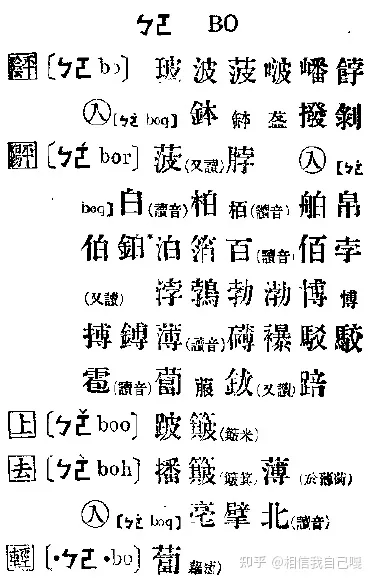 ㄅㄛ BO
陰平 [ㄅㄛ bo] 玻 波 菠 啵 嶓 餑
入 [ㄅㄛ boq] 鉢 缽 盋 撥 剝
陽平 [ㄅㄛˊ bor] 菠(又讀) 脖 入 [ㄅㄛˊ
boq] 白(讀音) 柏 栢(讀音) 舶 帛
伯 鉑* 泊 箔 百(讀音) 佰 孛
(又讀) 浡 鵓 勃 渤 博 愽
搏 鎛 薄(讀音) 礴 襮 駁 駮
雹(讀音) 蔔 菔 鈸(又讀) 踣
上 [ㄅㄛˇ boo] 跛 簸(簸米)
去 [ㄅㄛˋ boh] 播 簸(簸箕) 薄(於薄荷)
入 [ㄅㄛˋ boq] 亳 擘 北(讀音)
輕 [·ㄅㄛ ·bo] 蔔(蘿蔔)
知乎 @相信我自己嘎